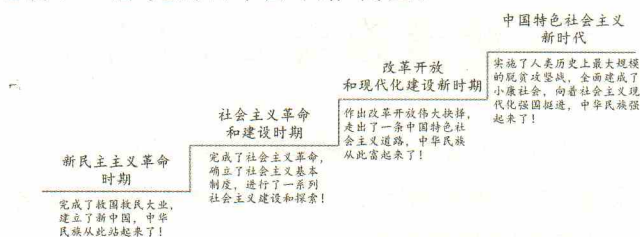 新民主主义革命
时期
完成了救国救民大业,
建立了新中国,中华
民族从此站起来了!
社会主义革命
和建设时期
完成了社会主义革命,
确立了社会主义基本
制度,进行了一系列
社会主义建设和探索!
改革开放
和现代化建设新时期
作出改革开放伟大抉择,
走出了一条中国特色社
会主义道路,中华民族
从此富起来了!
中国特色社会主义
新时代
实施了人类历史上最大规模
的脱贫攻坚战,全面建成了
小康社会,向着社会主义现
代化强国挺进,中华民族强
起来了!